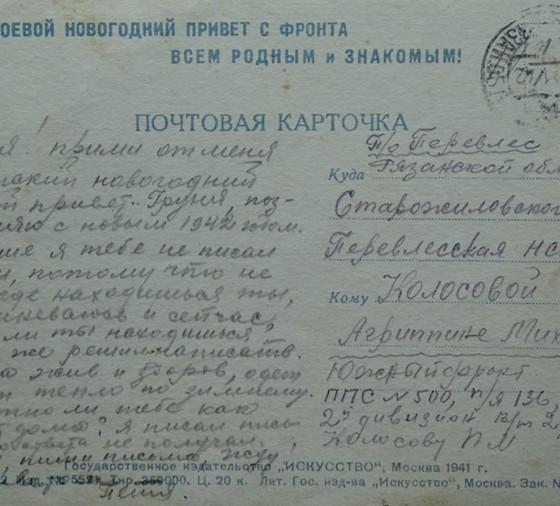 ОЕВОЙ НОВОГОДНИЙ ПРИВЕТ С ФРОНТА
ВСЕМ РОДНЫМ и ЗНАКОМЫМ!
ПОЧТОВАЯ КАРТОЧКА
я! прими от меня
ский новогодний
й привет. Груня, поз-
ляю с новым 1942 годом.
ше я тебе не писал
и, потому что не
где находишься ты,
неваюсь и сейчас
ли ты находишься,
же решил написать.
жив и здоров, одет
тепло по зимнему.
но ли тебе как
дома? я писал пись
ответа не получал.
пиши письма жду
Петя.
Куда П/о Перевлес
Рязанской обл
Старожиловског
Перевлесская
Кому Колосовой
Агриппине Мих
Южный фронт
ППС №500, п/я 136,
2й дивизион
Колосову П М
Государственное издательство „ИСКУССТВО", Москва 1941 г.
Изд. № 5521. Тир. 350000. Ц. 20 к. Лит. Гос. изд-ва „Искусство", Москва. Зак. №